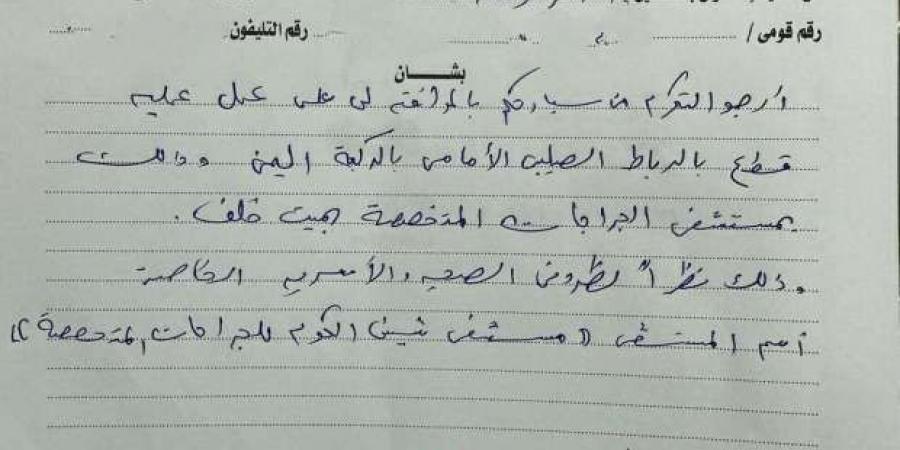 رقم قومى / رقم التليفون
بشـــان
أرجو التكرم من سيادتكم بالموافقة لى على عمل عمليه
قطع بالرباط الصليبى الأمامى بالركبة اليمنى وذلك
بمستشفى الجراحات المتخصصة بميت خلف.
وذلك نظراً لظروفى الصحيه والأسريه الخاصة
أسم المستشفى (( مستشفى شبين الكوم للجراحات المتخصصة ))